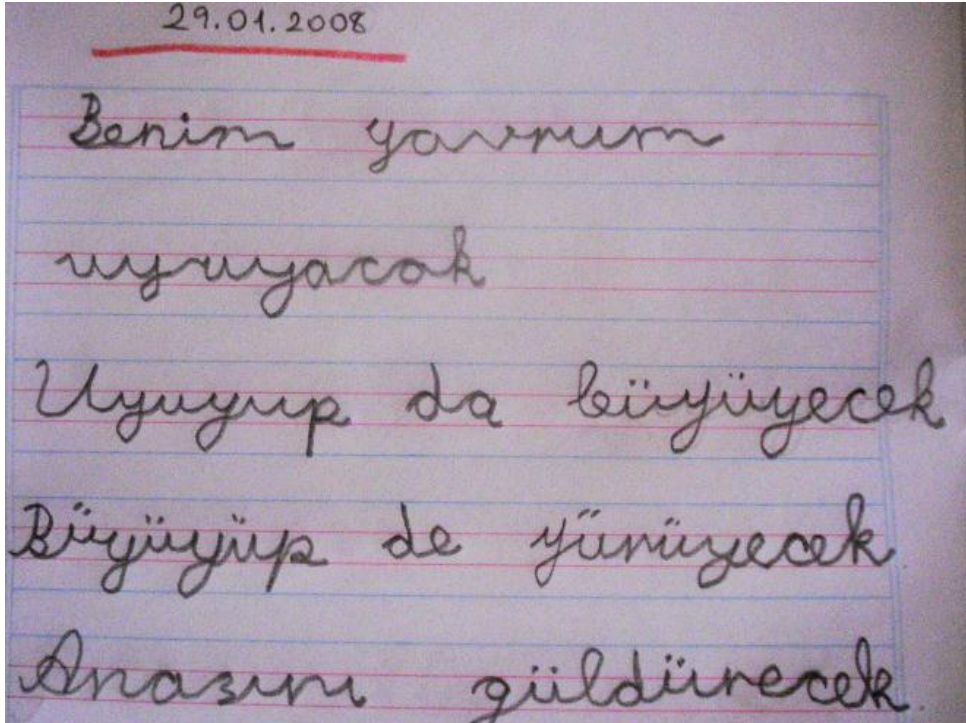 29.01.2008
Benim yavrum
uyuyacak
Uyuyup da büyüyecek
Büyüyüp de yürüyecek
Anasını güldürecek.